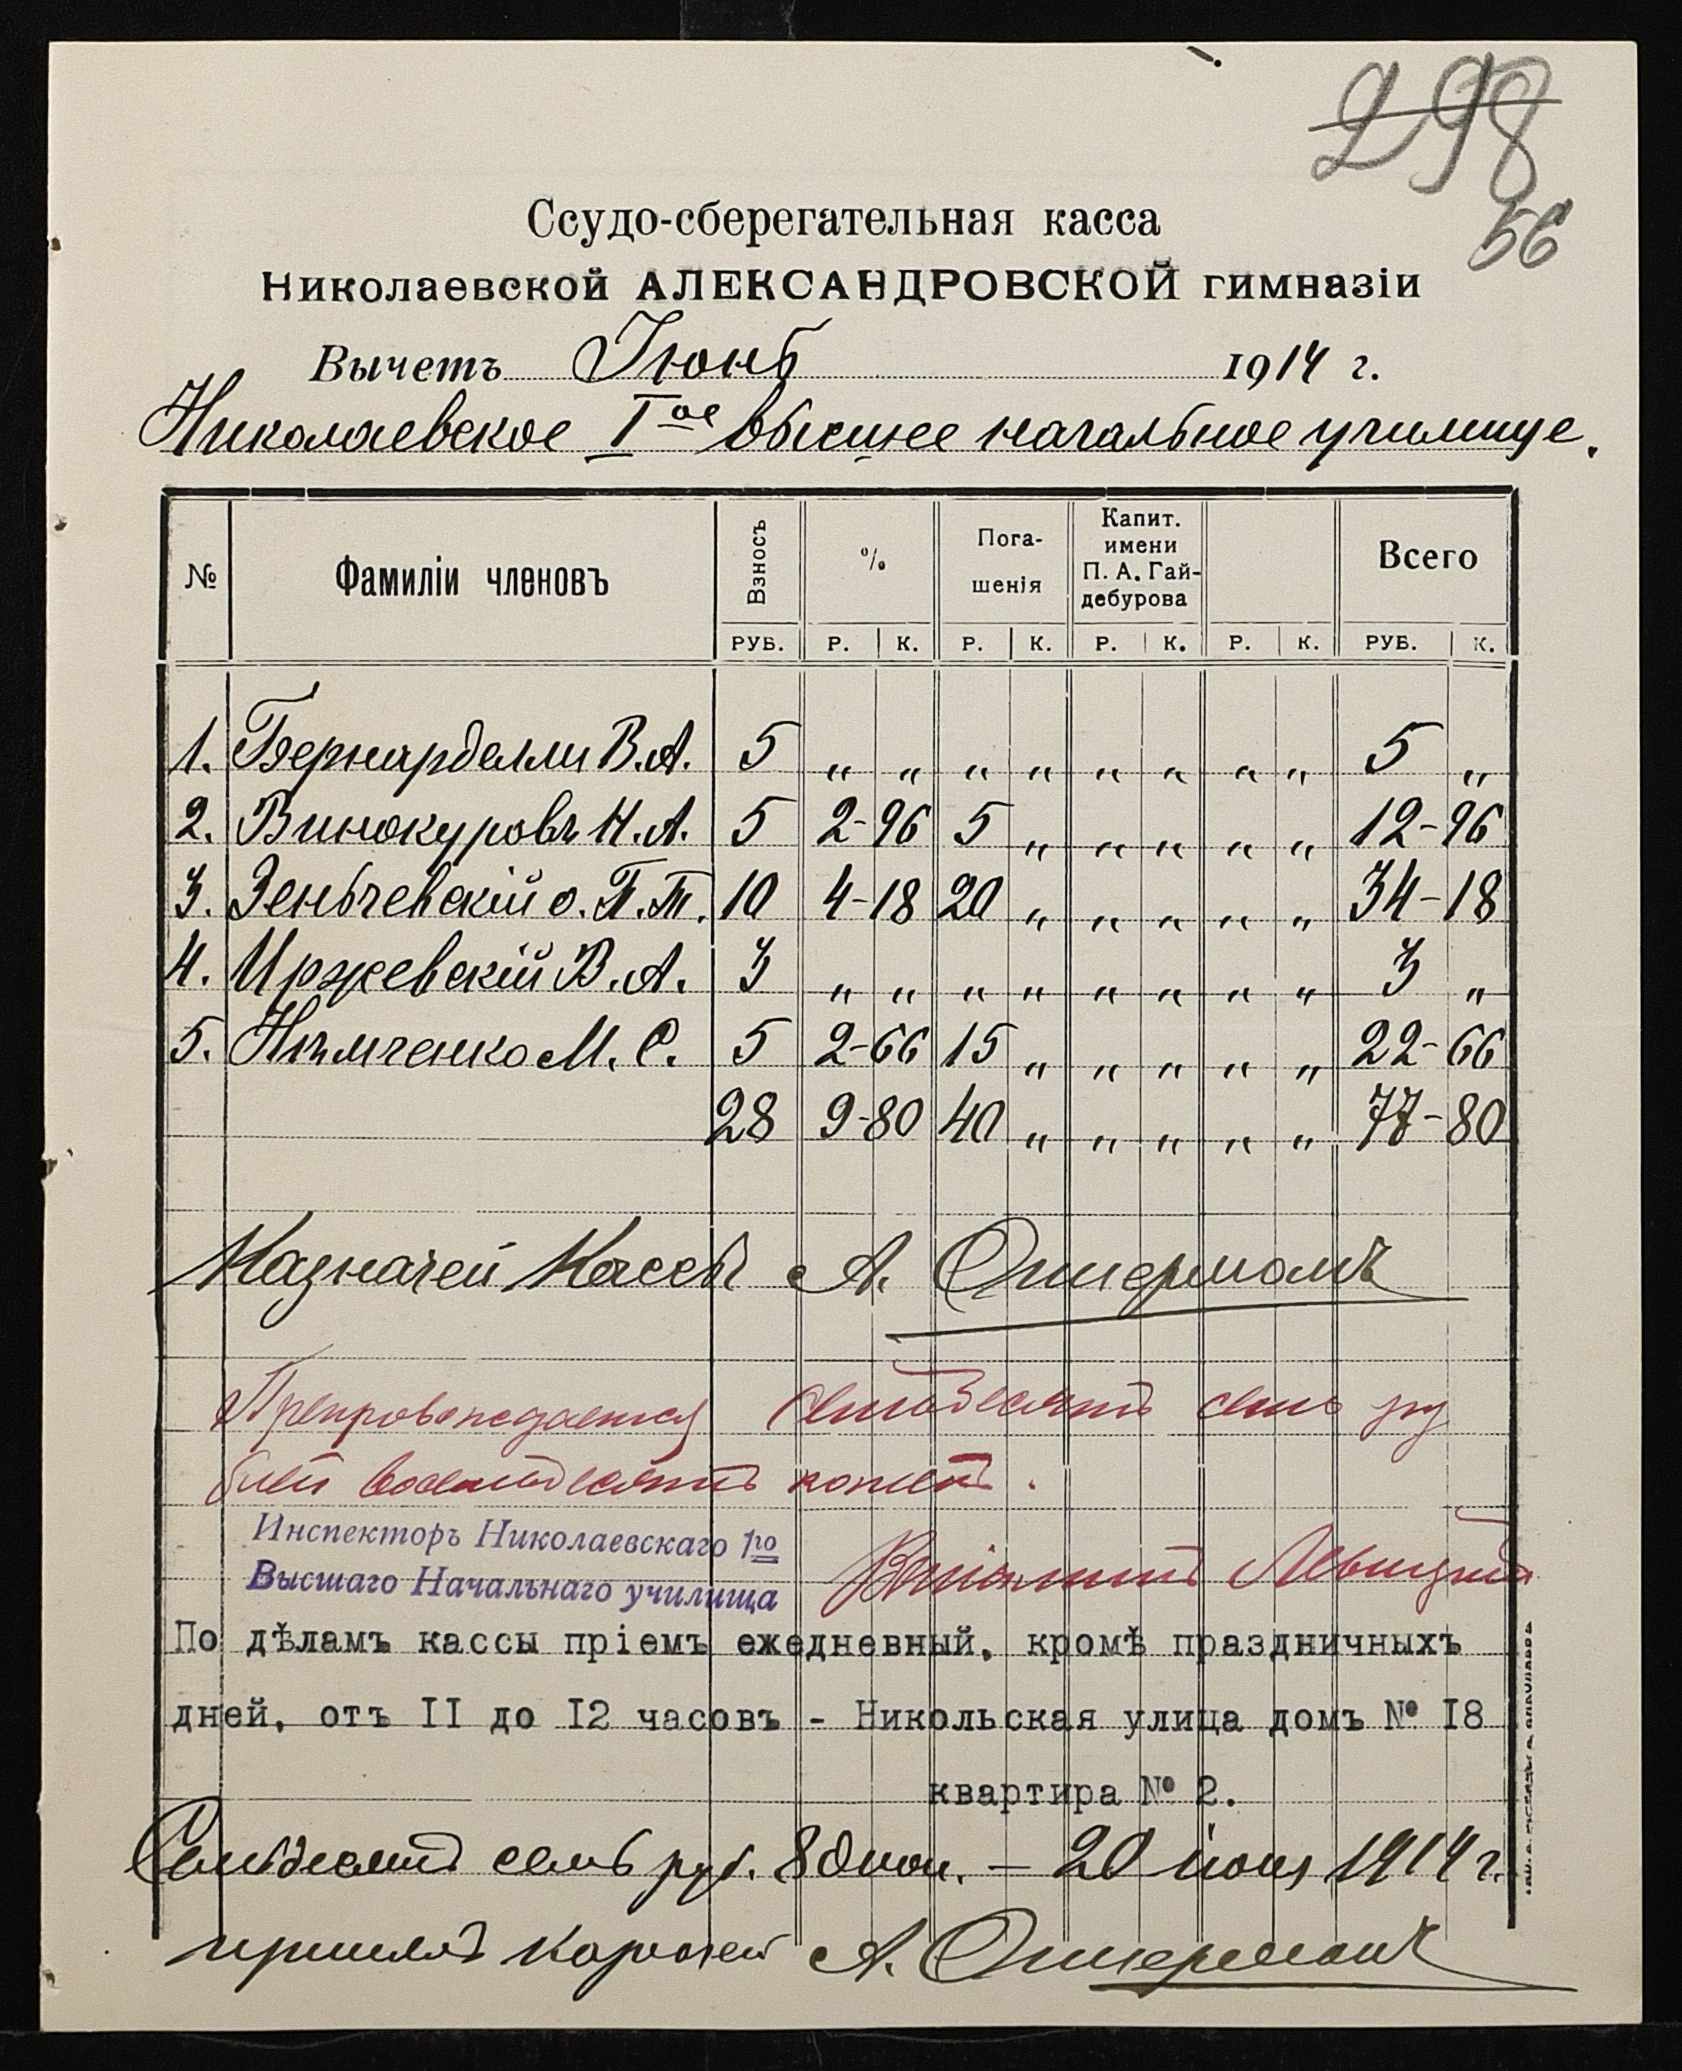 298
56
Ссудо-сберегательная касса
Николаевской АЛЕКСАНДРОВСКОЙ гимназіи
Вычетъ Іюнь 1914 г.
Николаевское I ое высшее начальное училище.
№ Фамиліи членовъ Взносъ % Пога-шенія Капит. имени П. А. Гай-дебурова Всего
РУБ. Р. К. Р. К. Р. К. Р. К. РУБ. К.
1. Бернарделли В.А. 5 „ „ „ „ „ „ „ „ 5 „
2. Винокуровъ Н.А. 5 2-96 5 „ „ „ „ „ 12-96
3. Зеньчевскій о. П.Т. 10 4-18 20 „ „ „ „ „ 34-18
4. Иржевскій В.А. 3 „ „ „ „ „ „ „ „ 3 „
5. Нѣмченко М.С. 5 2-66 15 „ „ „ „ „ 22-66
28 9-80 40 „ „ „ „ „ 77-80
Казначей Кассы А.
Препровождается семьдесятъ семь ру
блей восемьдесятъ копеекъ.
Инспекторъ Николаевскаго 1го
Высшаго Начальнаго училища Левицкій
По дѣламъ кассы пріемъ ежедневный, кромѣ праздничныхъ
дней, отъ II до I2 часовъ - Никольская улица домъ № I8
квартира № 2.
Семьдесятъ семь руб. 80 коп. — 20 іюня 1914 г.
принялъ казначей А.